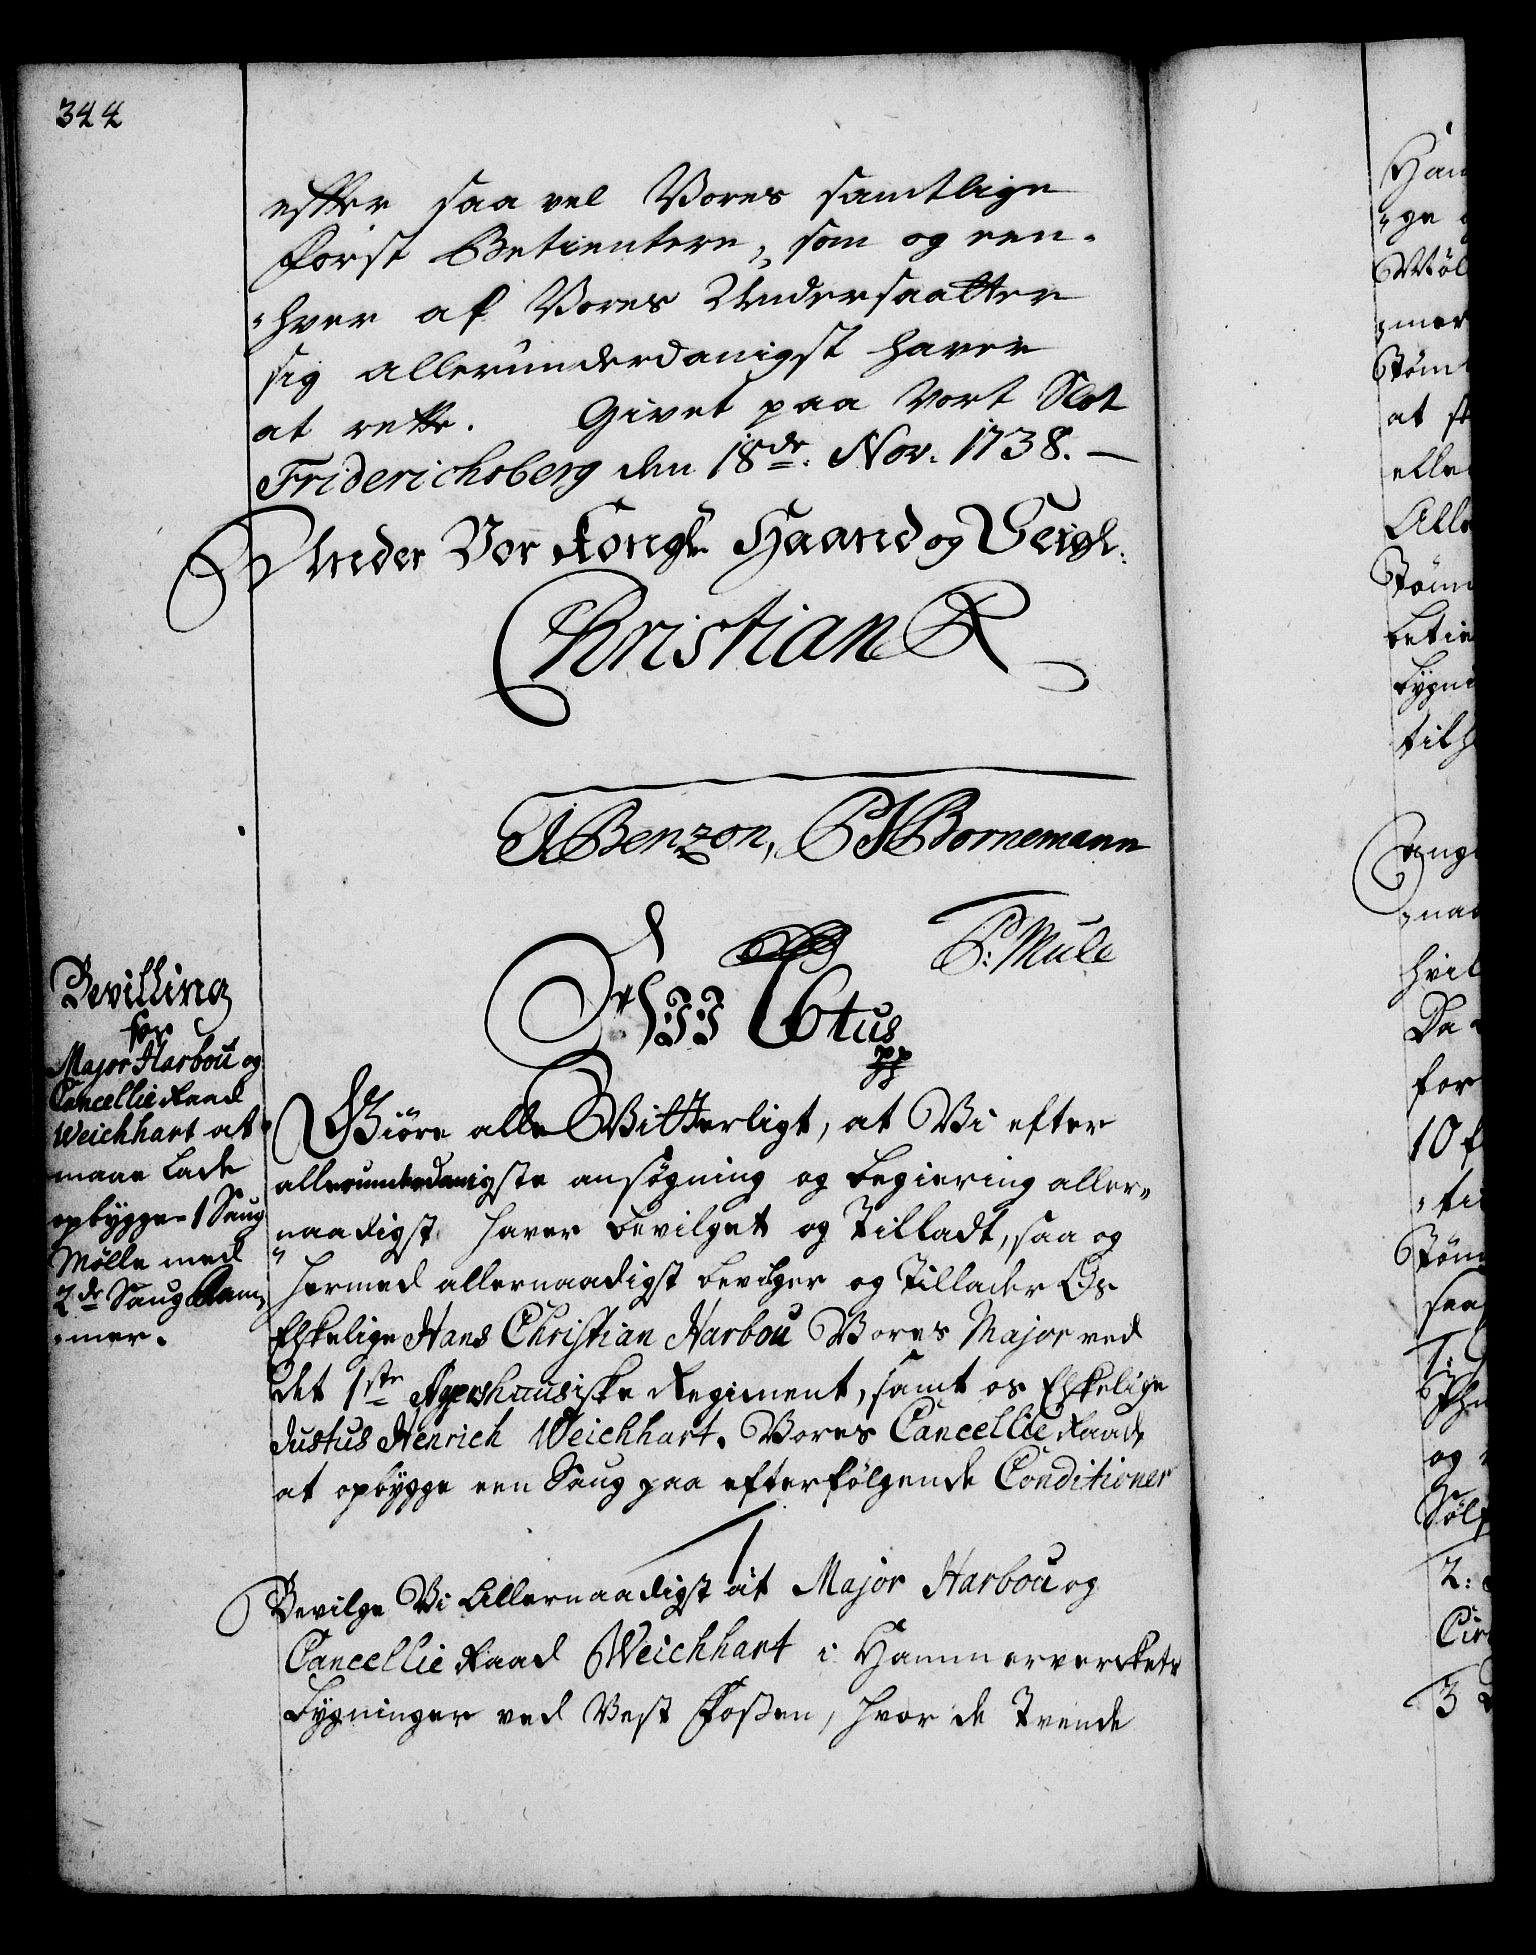 344
efter saa vel Vores samtlige
Forst Betientere, som og een-
"hver af Vores Undersaatter
sig allerunderdanigst haver
at rette. Givet paa Vort Slot
Friderichsberg den 18de. Nov. 1738. —
Under Vor Kongl. Haand og Seigl.
Christian R
JBenzon, PJBornemann
P: Mule
Totus
pp
Bevilling
for
Major Harbou og
Cancellie Raad
Weichhart at
maae lade
opbygge 1 Saug
Mølle med
2de Saug Ram,
"mer.
Giöre alle Vitterligt, at Vi efter
allerunderdanigste ansøgning og begiering aller„
naadigst haver bevilget og Tilladt, saa og
"hermed allernaadigst bevilger og Tillader Os
Elskelige Hans Christian Harbou Vores Major ved
det 1ste Agershuusiske Regiment, samt os Elskelige
Justus Henrich Weichhart. Vores Cancellie Raad,
at opbygge een Saug paa efterfølgende Conditioner
1
Bevilge Vi Allernaadigst at Major Harbou og
Cancellie Raad Weichhart i Hammerverckets
Bygninger ved Vest Foßen, hvor de Trende